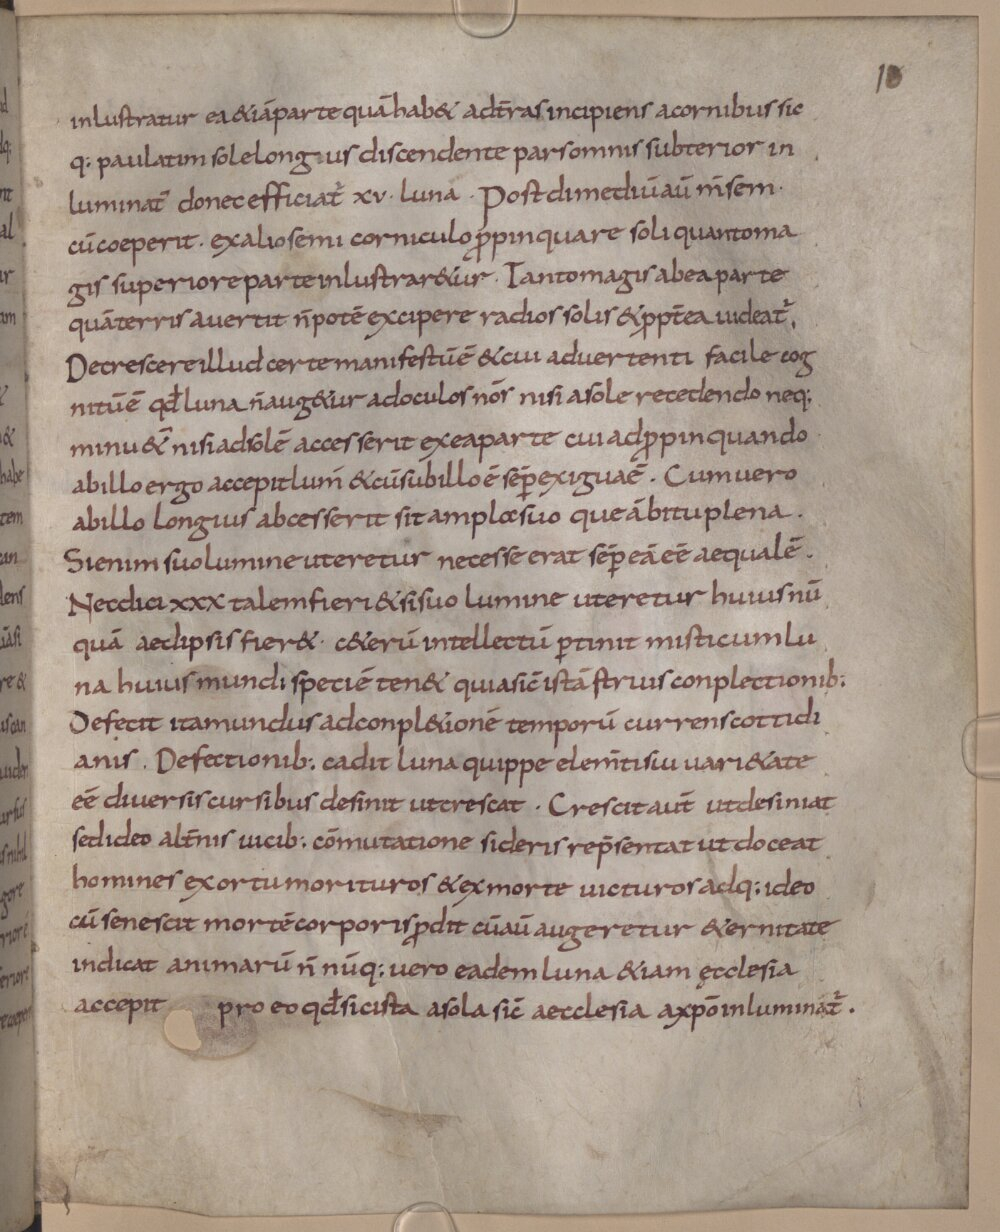 10
inlustratur ea &iā parte quā hab& ad t̄ras incipiens a cornibus sic
q; paulatim sole longius discendente pars omnis subterior in
luminat̄ donec efficiat᷑ xv· luna · Post dimediū aū m̄sem·
cū coeperit · ex alio semi corniculo ꝓpinquare soli quanto ma
gis superiore parte inlustrar&ur · Tanto magis ab ea parte
quā terris avertit n̄ potē excipere radios solis & ꝓpt̄ea uideat᷑,
Decrescere illud certe manifestū ē & cui advertenti facile cog
nitū ē qđ luna n̄ aug&ur ad oculos nōs nisi a sole recedendo neq;
minu&᷑ nisi ad solē accesserit ex ea parte cui adꝓpinquando
ab illo ergo accepit lum̄ & cū sub illo ē sēꝑ exigua ē . Cum vero
ab illo longius abcesserit sit amplæ suo que ābitu plena .
Si enim suo lumine uteretur necesse erat sēꝑ eā eē aequalē .
Nec dici xxx talem fieri & si suo lumine uteretur huius nū
quā aeclipsis fier& · c&erū intellectū ꝑtinit misticum lu
na huius mundi speciē ten& quia sic̄ istā &struis conplectionib;
Defecit ita mundus ad conpl&ionē temporū currens cottidi
anis . Defectionib; cadit luna quippe elem̄tisui vari&ate
eē diversis cursibus definit ut crescat · Crescit aut̄ ut desiniat
sed ideo alt̄nis uicib; cōmutatione sideris rep̄sentat ut doceat
homines ex ortu morituros & ex morte uicturos adq; ideo
cū senescit mortē corporis ꝓdit cū aū augeretur &ernitate
indicat animarū n̄ nūq; uero eadem luna &iam ęcclesia
accepit pro eo qđ sic ista a sola sic̄ aecclesia a xp̄o inluminat᷑ .